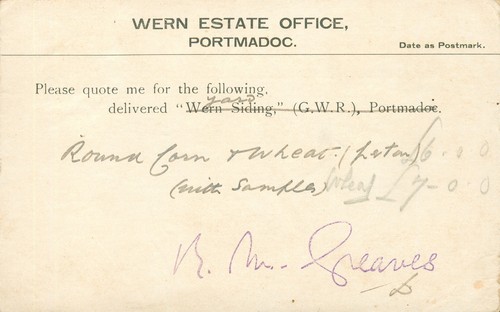 WERN ESTATE OFFICE,
PORTMADOC.
Date as Postmark.
Please quote me for the following,
yard
delivered "Wern Siding," (G.W.R.), Portmadoc.
Round Corn & Wheat (per ton) £6-0 0
(with Samples) Wheat £7-0-0
R. M. Greaves